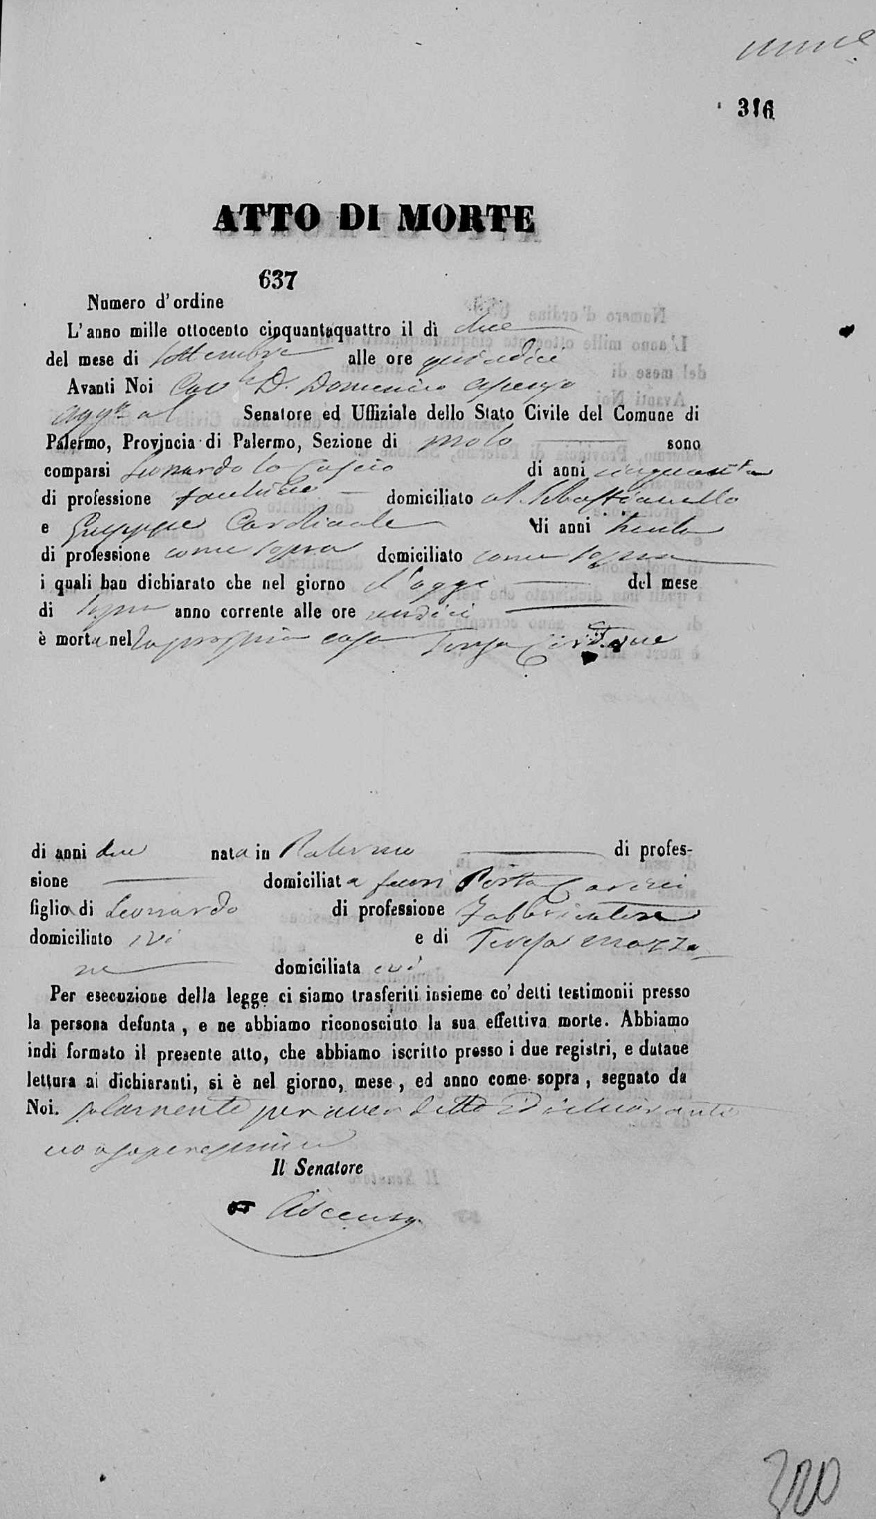 316
ATTO DI MORTE
637
Numero d'ordine
L'anno mille ottocento cinquantaquattro il dì due
del mese di Settembre alle ore quindici
Avanti Noi Cav. D. Domenico Ascenso
Agg.to al Senatore ed Uffiziale dello Stato Civile del Comune di
Palermo, Provincia di Palermo, Sezione di Molo sono
comparsi Leonardo lo Cascio di anni cinquanta
di professione domiciliato a S. Sebastianello
e Giuseppe Cardinale di anni trenta
di professione come sopra domiciliato come sopra
i quali han dichiarato che nel giorno d'oggi del mese
di sopra anno corrente alle ore undici
è morta nella propria casa Teresa
di anni due nata in Palermo di profes-
sione domiciliata fuori Porta Carini
figlia di Leonardo di professione Fabbricatore
domiciliato ivi e di Teresa Mazza
domiciliata ivi
Per esecuzione della legge ci siamo trasferiti insieme co' detti testimonii presso
la persona defunta, e ne abbiamo riconosciuto la sua effettiva morte. Abbiamo
indi formato il presente atto, che abbiamo iscritto presso i due registri, e datane
lettura ai dichiaranti, si è nel giorno, mese, ed anno come sopra, segnato da
Noi. solamente per aver detto i dichiaranti
non saper scrivere
Il Senatore
Ascenso
320